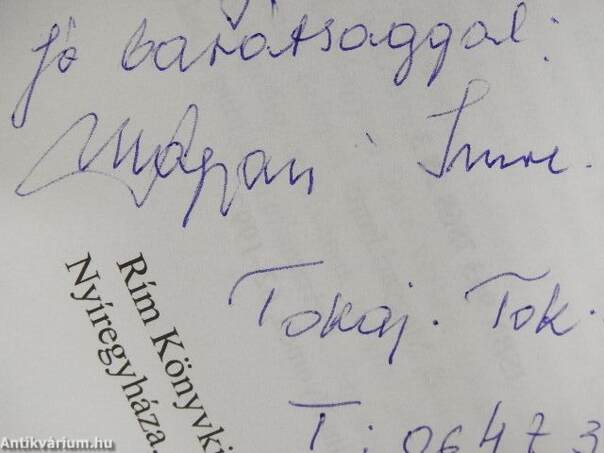 Jó barátsággal:
Imre.
Tokaj. Tok.
T: 06473
Rím Könyvki
Nyíregyháza,
Antikvárium.hu